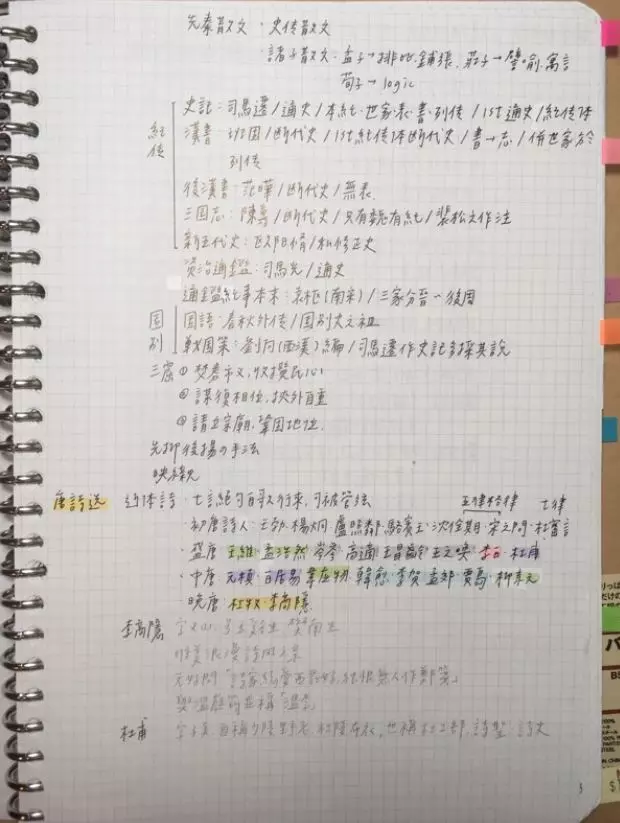 先秦散文・史传散文
・諸子散文・孟子→排比、鋪張、莊子→譬喻、寓言
荀子→logic
紀传
史記：司馬遷/通史/本紀・世家・表・書・列传/1st通史/紀传体
漢書：班固/断代史/1st紀传体断代史/書→志/併世家於
列传
後漢書：范曄/断代史/無表
三国志：陳壽/断代史/只有魏有紀/裴松之作注
新五代史：欧陽脩/私修正史
資治通鑑：司馬光/通史
通鑑紀事本末：袁枢(南宋)/三家分晉～後周
国别
国語：春秋外传/国别史之祖
戰国策：劉向(西漢)編/司馬遷作史記多採其說
三窟 ① 焚券市义，收攬民心
② 謀復相位，挾外自重
③ 請立宗廟，鞏固地位
先抑後揚の手法
映緣
唐詩选 近体詩・七言絕句自歌行來，可被管絃
五律 律 七律
・初唐詩人：王勃・楊炯・盧照鄰・駱賓王・沈佺期・宋之問・杜審言
・盛唐 王維・孟浩然 岑參 高適 王昌齡 王之渙 李白・杜甫
・中唐 元稹・白居易 韋应物 韓愈・李賀 孟郊・賈島・柳宗元
・晚唐：杜牧・李商隱
李商隱 字义山
元好問「詩家總愛西崑好，独恨無人作鄭箋」
與溫庭筠並稱「溫李」
杜甫 字子美，自稱少陵野老、杜陵布衣，也稱杜工部，詩聖・詩史
3